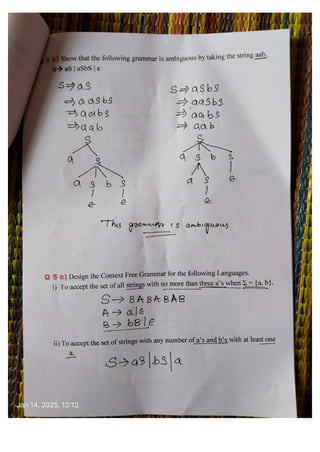 5 b) Show that the following grammar is ambiguous by taking the string aab.
S→ aS | aSbS | ε
S⇒aS
⇒ a aSbS
⇒ aabS
⇒ aab
S
a S
a S b S
e e
S⇒aSbS
⇒ aaSbS
⇒ aabS
⇒ aab
S
a S b S
a S e
e
This grammar is ambiguous
Q 5 c) Design the Context Free Grammar for the following Languages.
i) To accept the set of all strings with no more than three a's when Σ = {a, b}.
S → BABABAB
A → a|ε
B → bB|ε
ii) To accept the set of strings with any number of a's and b's with at least one
a.
S→aS|bS|a
Jan 14, 2025, 12:12